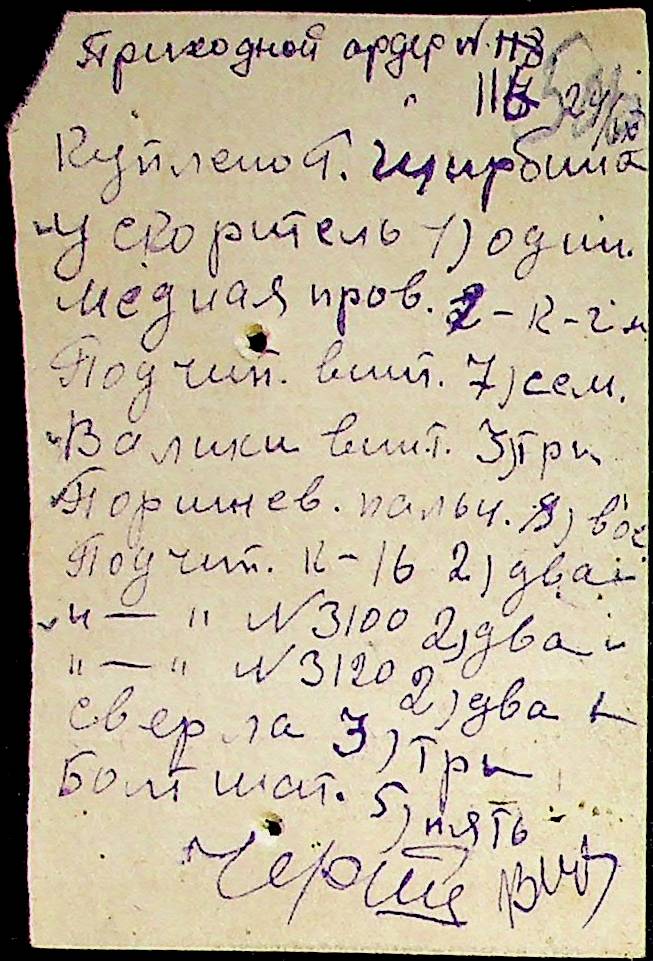 Приходной ордер N. 118
116 24/
Куплено т. Щирбина
Ускоритель 1) один.
Медная пров. 2-к-гм
Подчип. винт. 7) сем.
Валики винт. 3) три
Поршнев. пальч. 8) вос
Подчип. К-16 2) два
"—" N 3100 2) два
"—" N 3120 2) два
сверла 3) три
Болт шат. 5) пять